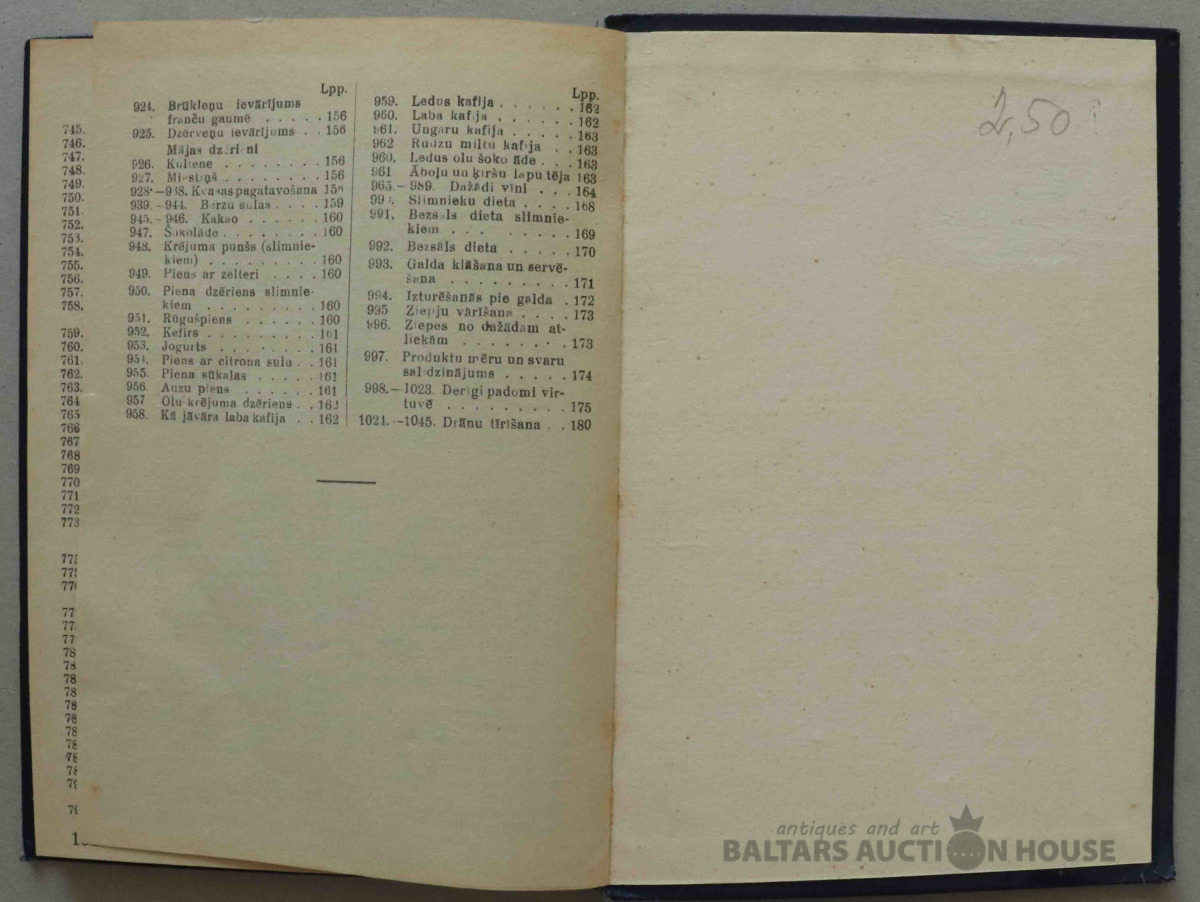 745.
746.
747.
748.
749.
750.
751.
752.
753.
754.
755.
756.
757.
758.
759.
760.
761.
762.
763.
764
765
766
767
768
769
770
771
772
773
77
78
78
78
78
78
78
78
78
Lpp.
924. Brūkleņu ievārījums
franču gaumē . . . . . 156
925. Dzērveņu ievārījums . . 156
Mājas dzērieni
926. Kuliene . . . . . . . . 156
927. Miestiņš . . . . . . . 156
928.—938. Kvasas pagatavošana 158
939.—944. Bērzu sulas . . . . 159
945.—946. Kakao . . . . . . 160
947. Šokolāde . . . . . . . . 160
948. Krējuma punšs (slimnie-
kiem) . . . . . . . . 160
949. Piens ar zelteri . . . . 160
950. Piena dzēriens slimnie-
kiem . . . . . . . . 160
951. Rūgušpiens . . . . . . 160
952. Kefirs . . . . . . . . 161
953. Jogurts . . . . . . . . 161
954. Piens ar citrona sulu . . 161
955. Piena sūkalas . . . . . 161
956. Auzu piens . . . . . . 161
957 Olu krējuma dzēriens . . 162
958. Kā jāvāra laba kafija . . 162
Lpp.
959. Ledus kafija . . . . . . 162
960. Laba kafija . . . . . . 162
961. Ungāru kafija . . . . . 163
962 Rudzu miltu kafija . . 163
960. Ledus olu šokolāde . . . 163
961 Ābolu un ķiršu lapu tēja 163
965.—989. Dažādi vīni . . . 164
990. Slimnieku dieta . . . . 168
991. Bezsāls dieta slimnie-
kiem . . . . . . . . 169
992. Bezsāls dieta . . . . . 170
993. Galda klāšana un servē-
šana . . . . . . . . . 171
994. Izturēšanās pie galda . 172
995 Ziepju vārīšana . . . . 173
996. Ziepes no dažādām at-
liekām . . . . . . . 173
997. Produktu mēru un svaru
salīdzinājums . . . . . 174
998.—1023. Derīgi padomi vir-
tuvē . . . . . . . . . 175
1024.—1045. Drānu tīrīšana . . 180
2,50
antiques and art
BALTARS AUCTION HOUSE